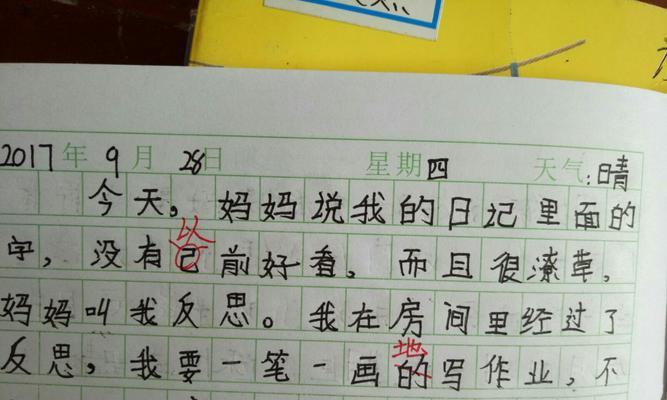 2017年9月28日 星期四 天气:晴
今天,妈妈说我的日记里面的
以
字,没有己前好看,而且很潦草,
妈妈叫我反思。我在房间里经过了
地
反思,我要一笔一画的写作业,不